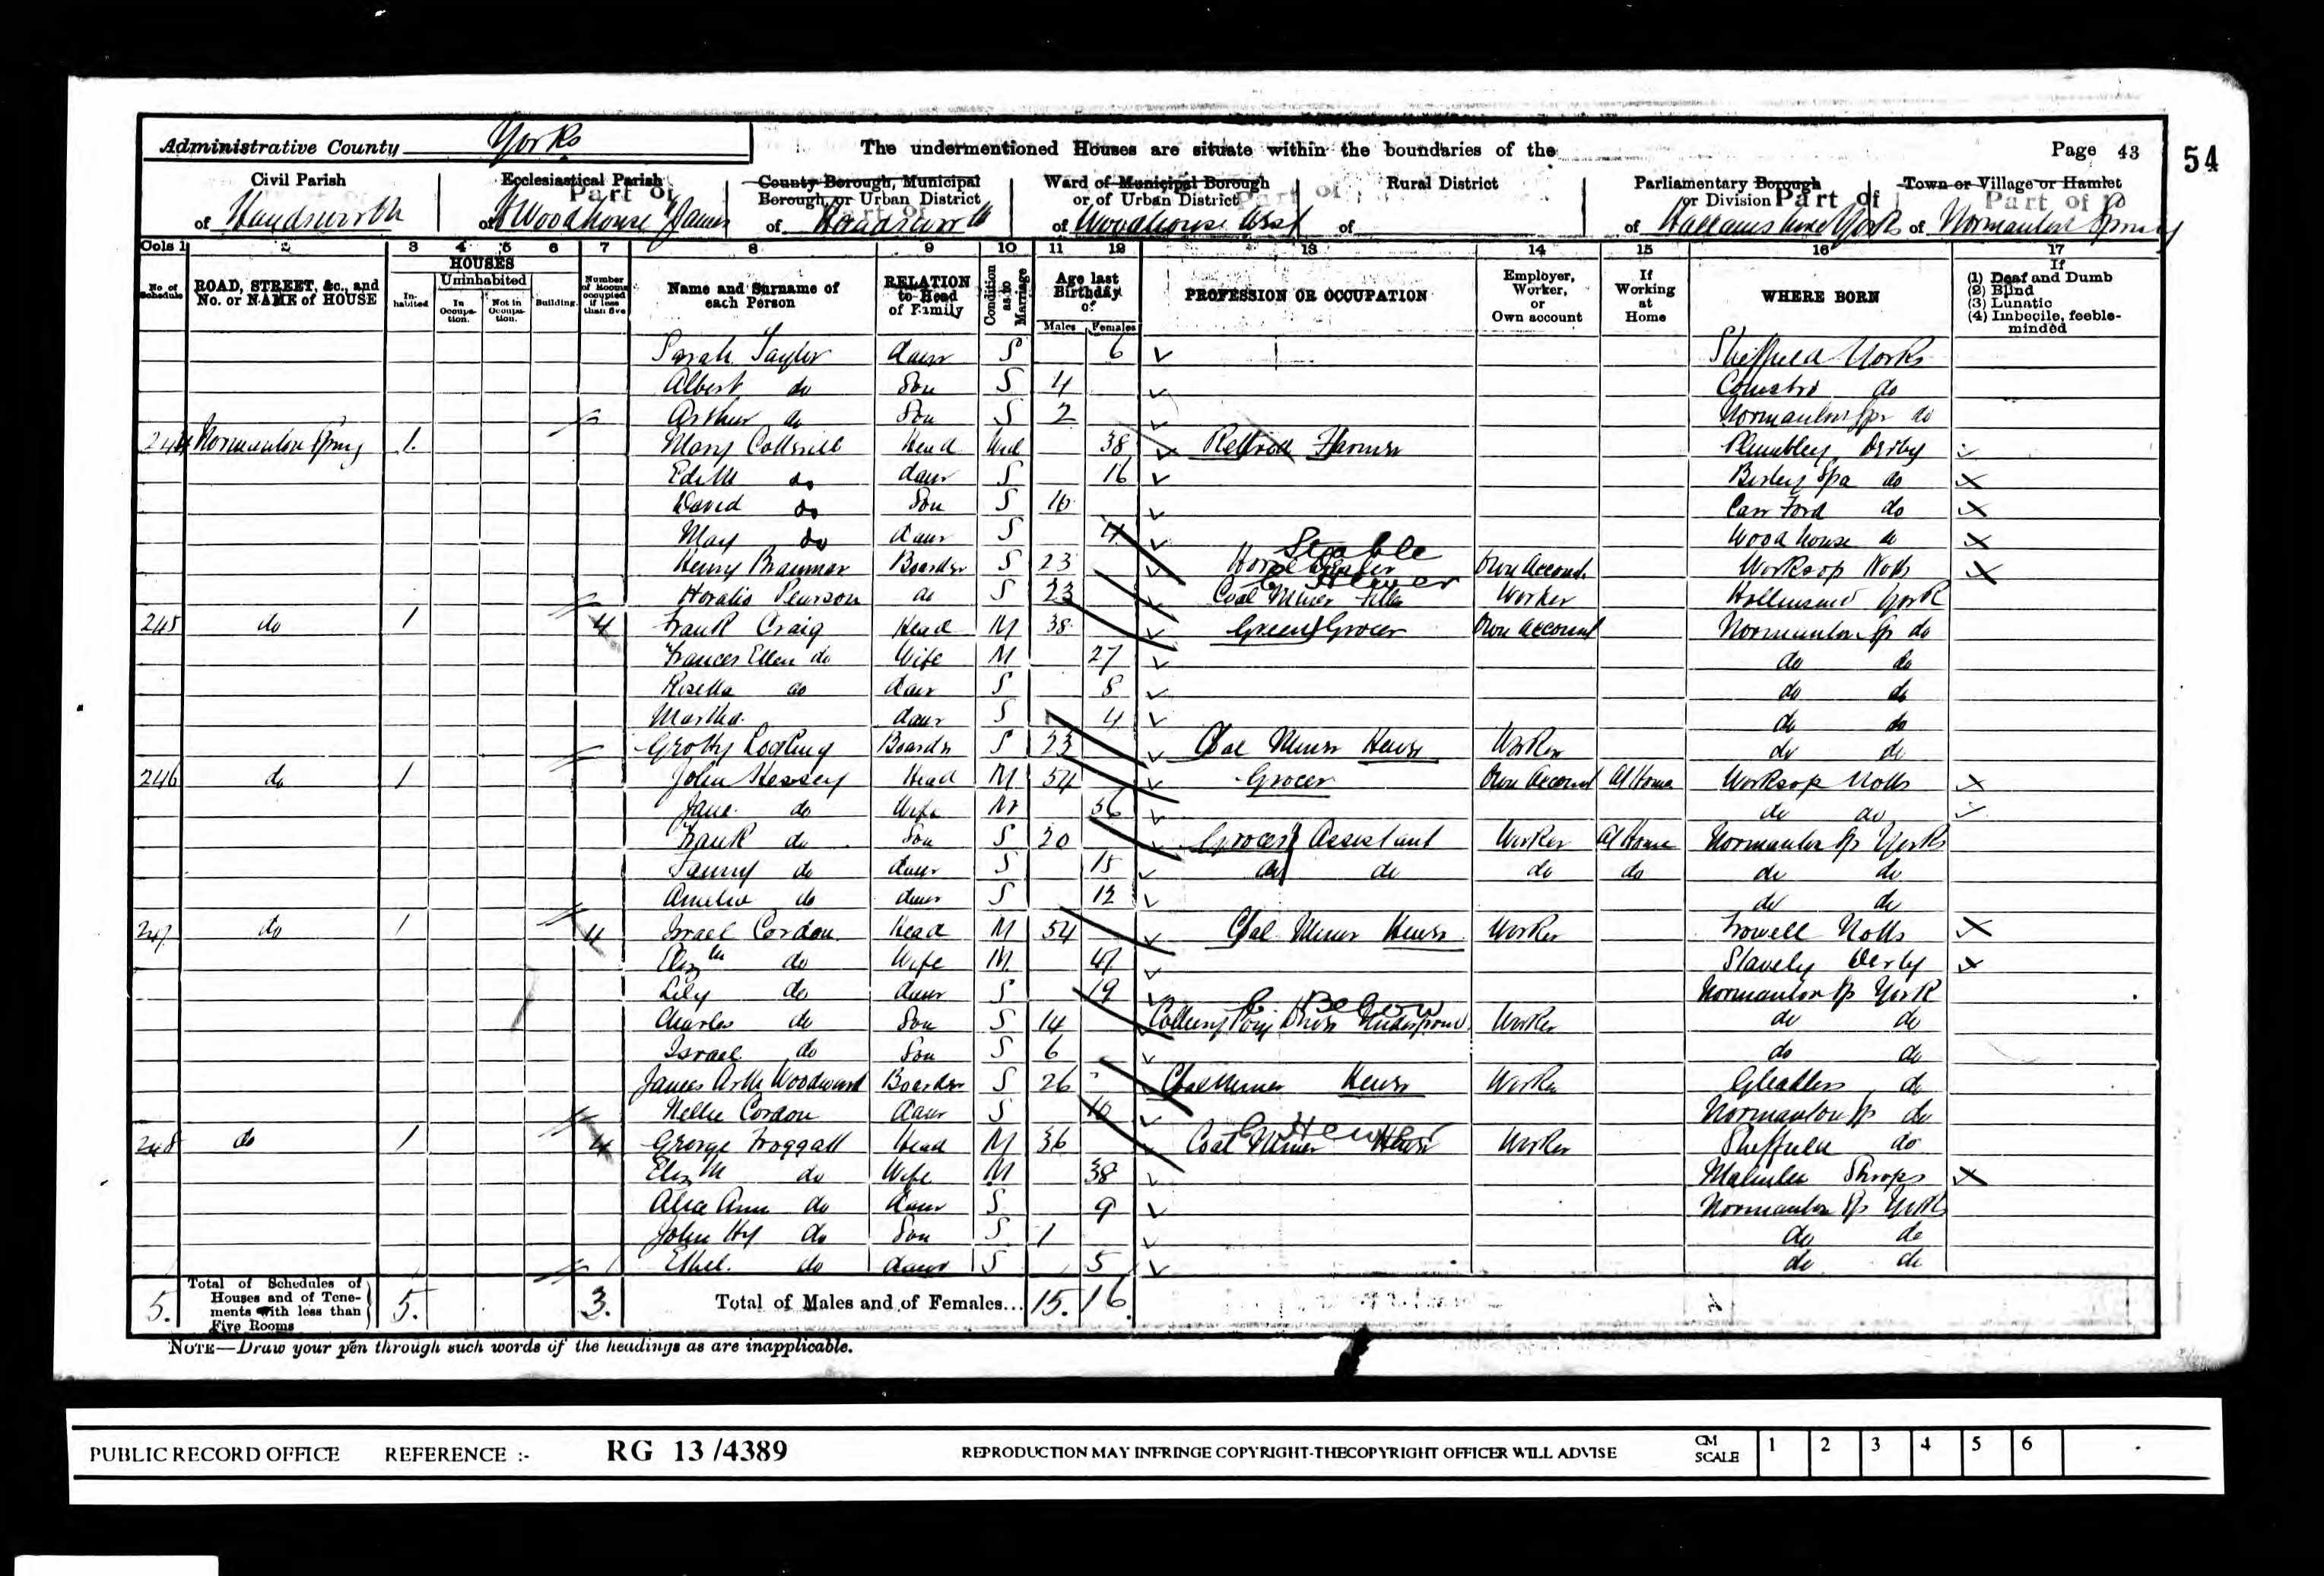 Administrative County Yorks
The undermentioned Houses are situate within the boundaries of the
Page 43
54
Civil Parish of Handsworth
Ecclesiastical Parish Part of of Woodhouse St James
County Borough, Municipal Borough, or Urban District Part of of Handsworth
Ward of Municipal Borough or of Urban District Part of of Woodhouse West
Rural District of
Parliamentary Borough or Division Part of of Hallamshire York
Town or Village or Hamlet Part of of Normanton Spring
Cols 1 2 3 4 5 6 7 8 9 10 11 12 13 14 15 16 17
No. of Schedule
ROAD, STREET, &c., and No. or NAME of HOUSE
HOUSES
Inhabited
Uninhabited
In Occupation.
Not in Occupation.
Building.
Number of Rooms occupied if less than five
Name and Surname of each Person
RELATION to Head of Family
Condition as to Marriage
Age last Birthday of
Males Females
PROFESSION OR OCCUPATION
Employer, Worker, or Own account
If Working at Home
WHERE BORN
If
(1) Deaf and Dumb
(2) Blind
(3) Lunatic
(4) Imbecile, feeble-minded
Sarah Taylor daur S 6 Sheffield Yorks
Albert do Son S 4 do
Arthur do Son S 2 Normanton Spr do
244 Normanton Spring 1 Mary Head Wid 38 Farmer Derby
Edith do daur S 16 do
David do Son S 10 Carr Ford do
May do daur S 4 Woodhouse do
Henry Boarder S 23 Stable Own Account Worksop Notts
Horatio Pearson do S 23 Coal Miner Filler Hewer Worker Hollinsend York
245 do 1 4 Frank Craig Head M 38 Green Grocer Own account Normanton Sp do
Frances Ellen do Wife M 27 do do
Rosella do daur S 8 do do
Martha daur S 4 do do
Boarder S 23 Coal Miner Hewer Worker do do
246 do 1 John Head M 54 Grocer Own Account At Home Worksop Notts
Jane do Wife M 56 do do
Frank do Son S 20 Grocers Assistant Worker At Home Normanton Sp York
Fanny do daur S 15 do do do do do do
Amelia do daur S 12 do do
247 do 1 4 Israel Cordon Head M 54 Coal Miner Hewer Worker Trowell Notts
Elizth do Wife M 47 Stavely Derby
Lily do daur S 19 Normanton Sp York
Charles do Son S 14 Colliery Pony Driver Underground Below Worker do do
Israel do Son S 6 do do
James Arth Woodward Boarder S 26 Coal Miner Hewer Worker Gleadless do
Nellie Cordon daur S 10 Normanton Sp do
248 do 1 4 George Froggatt Head M 36 Coal Miner Hewer Hewer Worker Sheffield do
Elizth do Wife M 38 Shrops
Alice Ann do daur S 9 Normanton Sp York
John Hy do Son S 1 do do
Ethel do daur S 5 do do
5. Total of Schedules of Houses and of Tenements with less than Five Rooms 5. 3. Total of Males and of Females... 15. 16
NOTE—Draw your pen through such words of the headings as are inapplicable.
PUBLIC RECORD OFFICE REFERENCE :- RG 13/4389 REPRODUCTION MAY INFRINGE COPYRIGHT-THECOPYRIGHT OFFICER WILL ADVISE CM SCALE 1 2 3 4 5 6